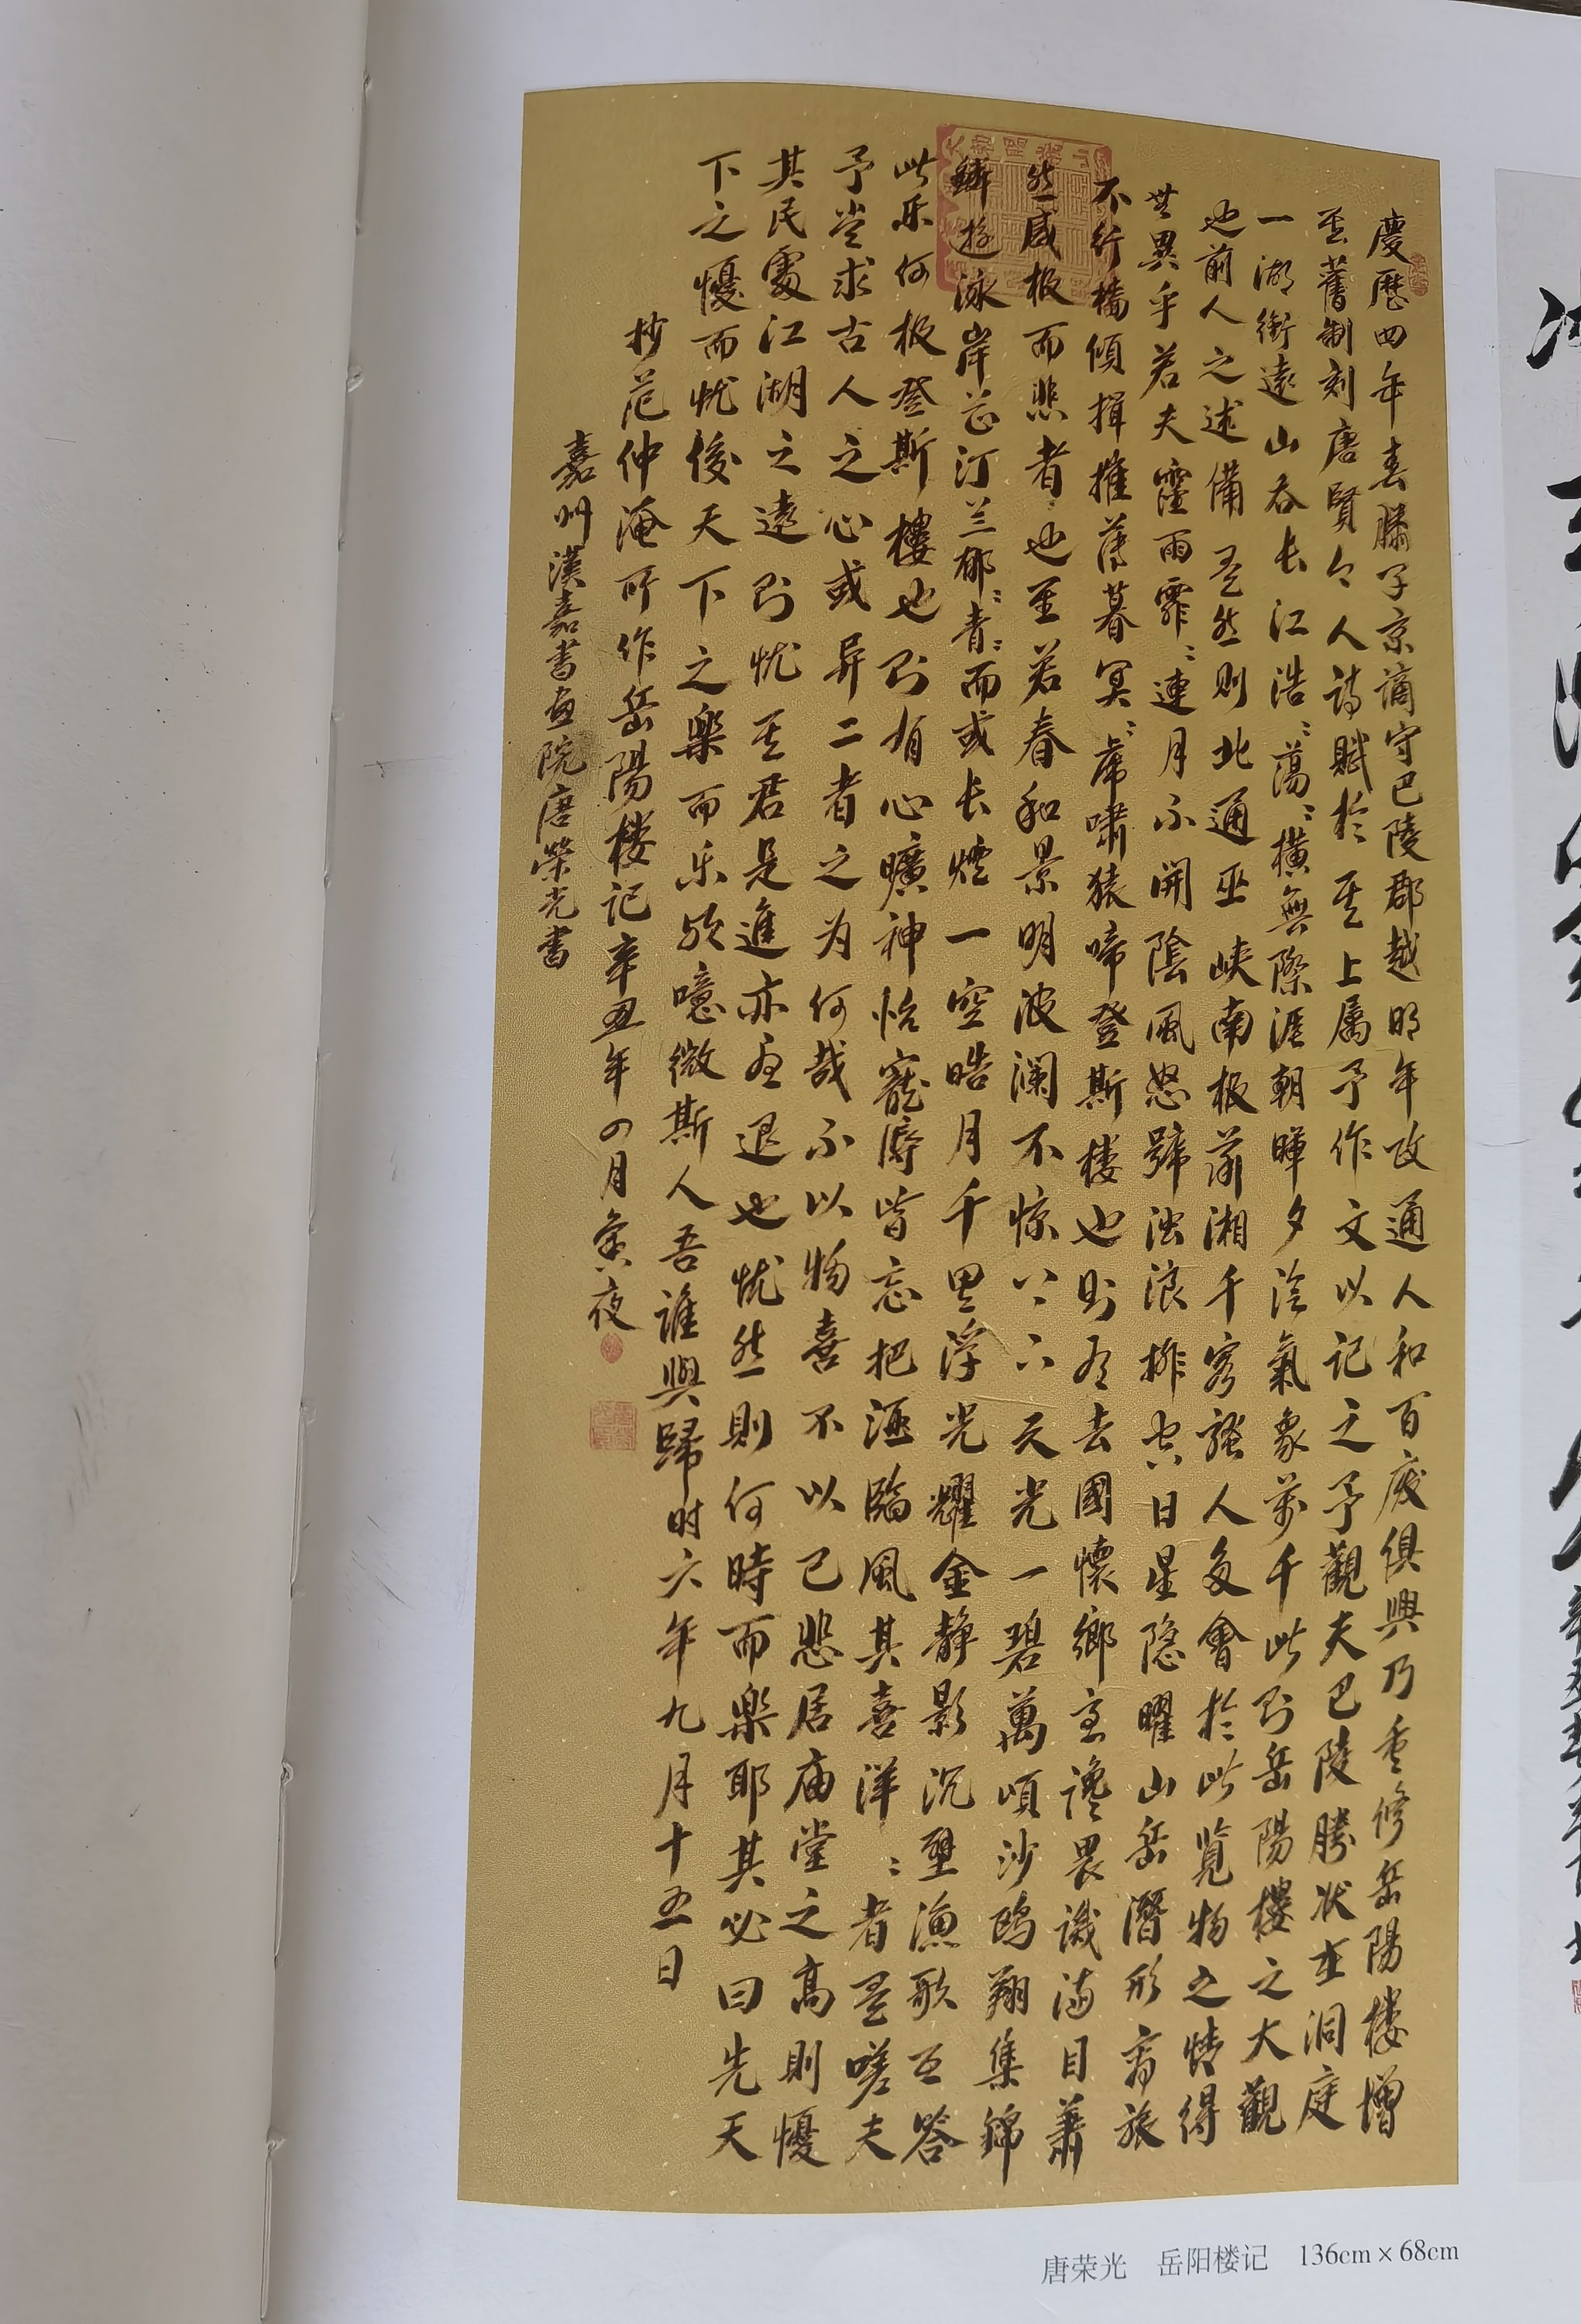 慶歷四年春滕子京謫守巴陵郡越明年政通人和百废俱興乃重修岳陽楼增
其舊制刻唐賢今人詩賦於其上属予作文以记之予觀夫巴陵勝状在洞庭
一湖銜遠山吞长江浩〻蕩〻橫無際涯朝暉夕陰氣象萬千此则岳陽樓之大觀
也前人之述備矣然则北通巫峡南极潇湘千客騷人多會於此览物之情得
無異乎若夫霪雨霏〻連月不開陰風怒號浊浪排空日星隐曜山岳潛形商旅
不行檣傾楫摧薄暮冥〻虎嘯猿啼登斯楼也則有去國懷鄉憂讒畏譏滿目萧
然感极而悲者也至若春和景明波澜不惊上下天光一碧萬頃沙鸥翔集錦
鱗游泳岸芷汀兰郁〻青〻而或长煙一空皓月千里浮光耀金静影沉璧渔歌互答
此乐何极登斯樓也则有心曠神怡寵辱皆忘把酒臨風其喜洋〻者矣嗟夫
予尝求古人之心或异二者之为何哉不以物喜不以己悲居庙堂之高則憂
其民處江湖之遠则忧其君是進亦退也忧然則何時而樂耶其必曰先天
下之憂而忧後天下之樂而乐欤噫微斯人吾誰與歸时六年九月十五日
抄范仲淹所作岳陽楼记辛丑年四月夜
嘉州漢嘉書画院唐榮光書
唐荣光 岳阳楼记 136cm×68cm